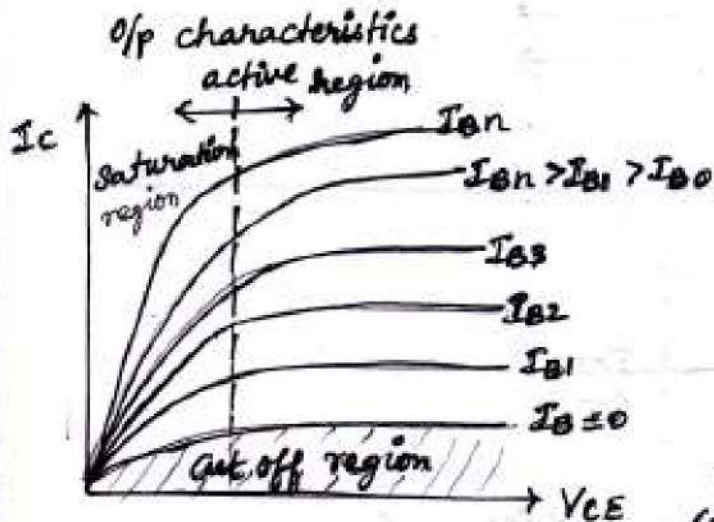 O/p characteristics
active region
Ic
Saturation
region
IBn
IBn > IB1 > IB0
IB3
IB2
IB1
IB ≤ 0
Cut off region
VCE